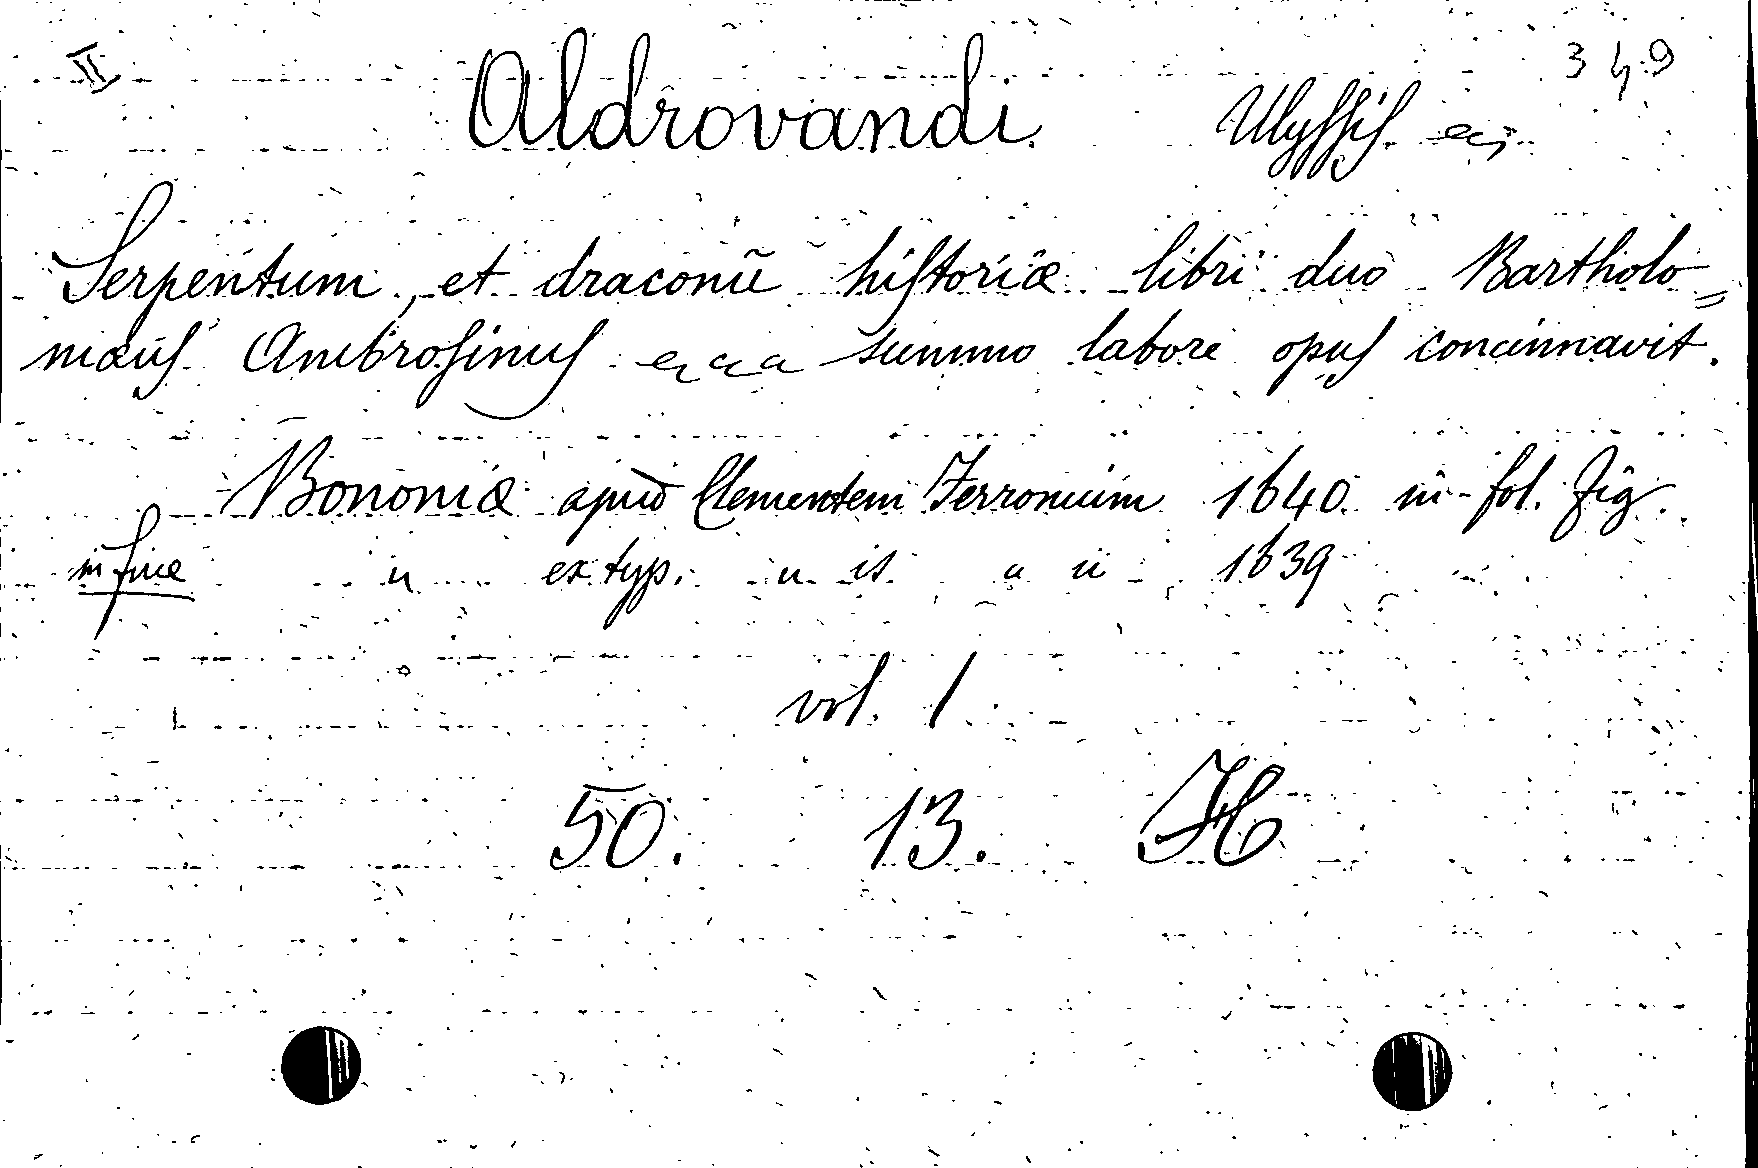 II 349
Aldrovandi Ulyssis.
Serpentum, et draconũ historiæ libri duo Bartholo=
mæus Ambrosinus summo labore opus concinnavit.
Bononiæ apud Clementem Ferronium 1640 in-fol. fig.
in fine " ex typ. " " " " 1639
vol. 1
50. 13. H